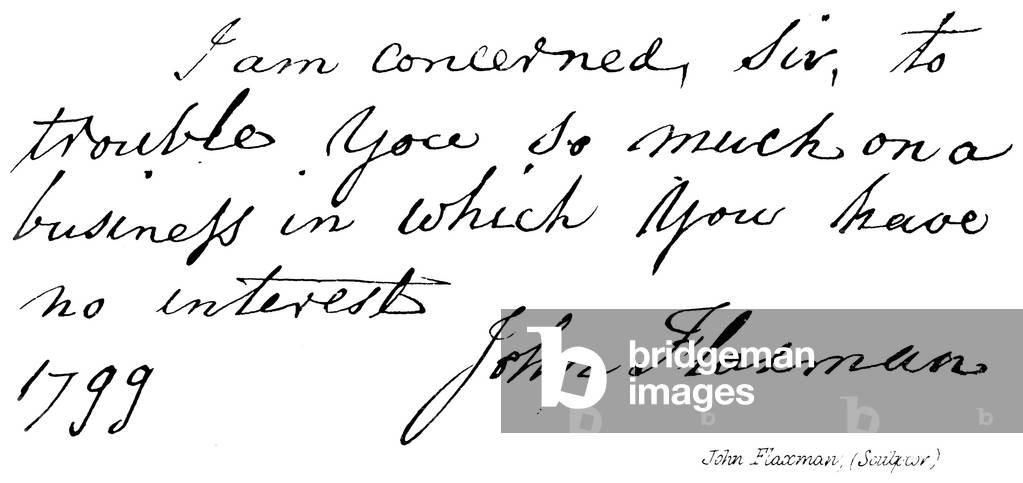 I am concerned, Sir, to
trouble You so much on a
busineſs in which You have
no interest
1799 John Flaxman
bridgeman images
John Flaxman, (Sculptor)